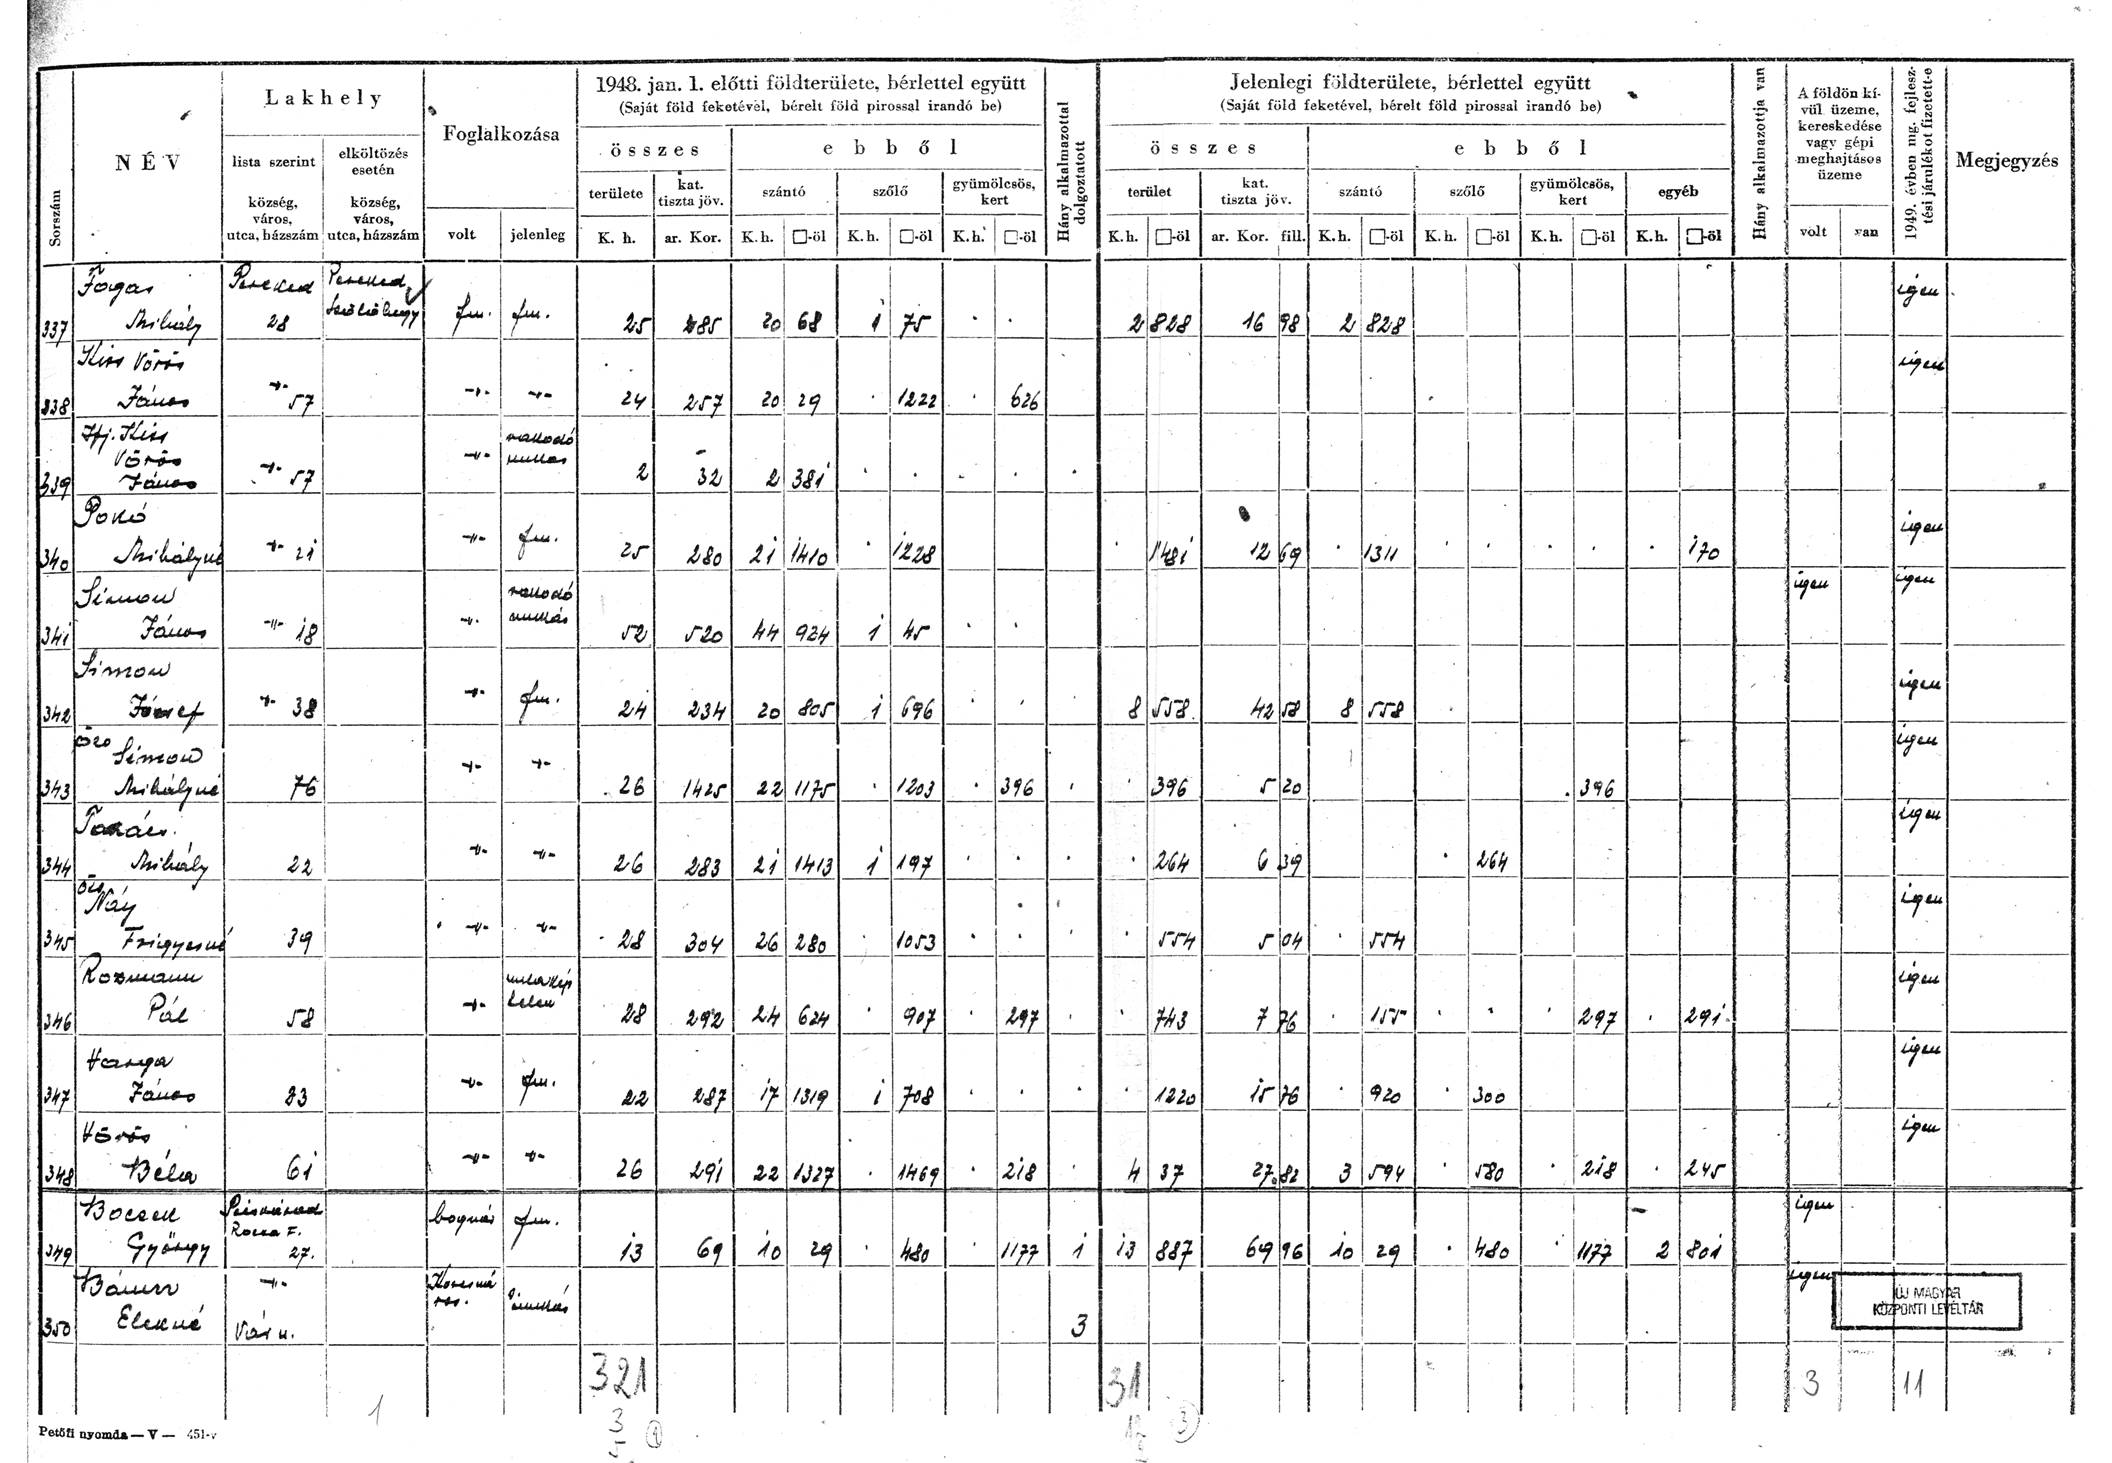 1948. jan. 1. előtti földterülete, bérlettel együtt
(Saját föld feketével, bérelt föld pirossal irandó be)
Jelenlegi földterülete, bérlettel együtt
(Saját föld feketével, bérelt föld pirossal irandó be)
Sorszám
NÉV
Lakhely
lista szerint
község,
város,
utca, házszám
elköltözés
esetén
község,
város,
utca, házszám
Foglalkozása
volt jelenleg
összes
területe
K. h.
kat.
tiszta jöv.
ar. Kor.
ebből
szántó
K. h. □-öl
szőlő
K. h. □-öl
gyümölcsös,
kert
K. h. □-öl
Hány alkalmazottal
dolgoztatott
összes
terület
K. h. □-öl
kat.
tiszta jöv.
ar. Kor. fill.
ebből
szántó
K. h. □-öl
szőlő
K. h. □-öl
gyümölcsös,
kert
K. h. □-öl
egyéb
K. h. □-öl
Hány alkalmazottja van
A földön kí-
vül üzeme,
kereskedése
vagy gépi
meghajtásos
üzeme
volt van
1949. évben mg. fejlesz-
tési járulékot fizetett-e
Megjegyzés
Fogas Pereked Pereked igen
337 Mihály 28 Szőlőhegy fm. fm. 25 285 20 68 1 75 · · 2 828 16 98 2 828
Kiss Vörös igen
338 János -"- 57 -"- -"- 24 257 20 29 · 1222 · 626
Ifj. Kiss rakodó
Vörös munkás
339 János -"- 57 -"- 2 32 2 381 · · · · ·
Pokó igen
340 Mihályné -"- 21 -"- fm. 25 280 21 1410 · 1228 · 1481 12 69 · 1311 · · · · · 170
Simon rakodó igen igen
341 János -"- 18 -"- munkás 52 520 44 924 1 45 · ·
Simon igen
342 József -"- 38 -"- fm. 24 234 20 805 1 696 · · 8 558 42 58 8 558
özv Simon igen
343 Mihályné 76 -"- -"- 26 1425 22 1175 · 1203 · 396 · · 396 5 20 · 396
Takács igen
344 Mihály 22 -"- -"- 26 283 21 1413 1 197 · · · · 264 6 39 · 264
özv Náy igen
345 Frigyesné 39 -"- -"- 28 304 26 280 · 1053 · · · · 554 5 04 · 554
Rozmann igen
346 Pál 58 -"- 28 292 24 624 · 907 · 297 · · 743 7 76 · 155 · · · 297 · 291
Varga igen
347 János 83 -"- fm. 22 287 17 1319 1 708 · · · · 1220 15 76 · 920 · 300
Vörös igen
348 Béla 61 -"- -"- 26 291 22 1327 · 1469 · 218 · 4 37 27 82 3 594 · 580 · 218 · 245
Pécsvárad bognár fm. igen
349 György 27. 13 69 10 29 · 480 1177 1 13 887 69 96 10 29 · 480 · 1177 2 801
-"- igen
350 Elekné Vár u. 3
321 31 3 11
1 3 3
ÚJ MAGYAR
KÖZPONTI LEVÉLTÁR
Petőfi nyomda — V — 451-v